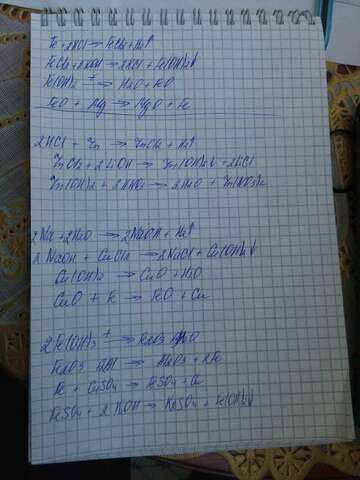 Fe + 2HCl → FeCl2 + H2↑
FeCl2 + 2KOH → 2KCl + Fe(OH)2↓
Fe(OH)2 →t H2O + FeO
FeO + Mg → MgO + Fe
2HCl + Zn → ZnCl2 + H2↑
ZnCl2 + 2LiOH → Zn(OH)2↓ + 2LiCl
Zn(OH)2 + 2HNO3 → 2H2O + Zn(NO3)2
2Na + 2H2O → 2NaOH + H2↑
2NaOH + CuCl2 → 2NaCl + Cu(OH)2↓
Cu(OH)2 → CuO + H2O
CuO + Fe → FeO + Cu
2Fe(OH)3 →t Fe2O3 + H2O
Fe2O3 + 2Al → Al2O3 + 2Fe
Fe + CuSO4 → FeSO4 + Cu
FeSO4 + 2KOH → K2SO4 + Fe(OH)2↓